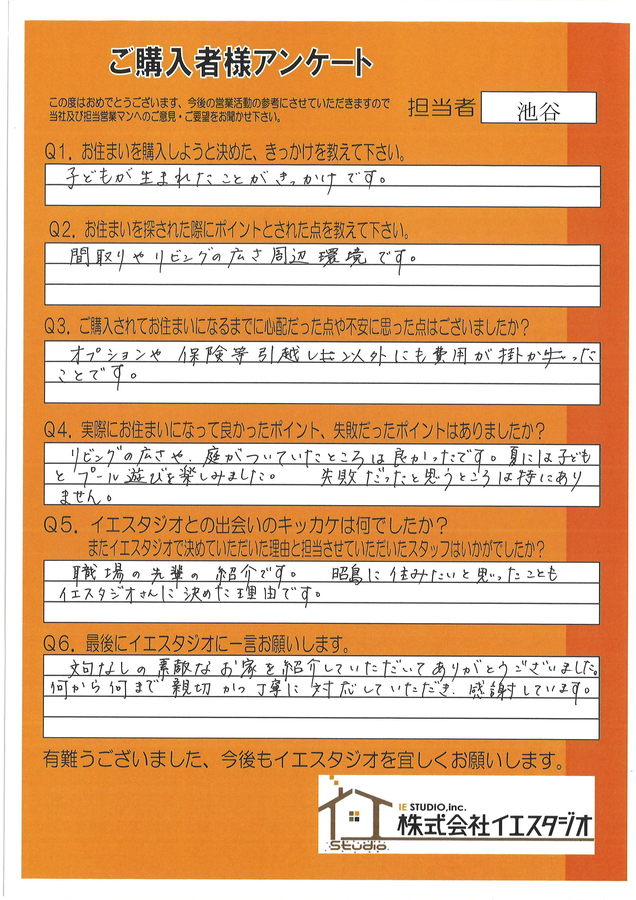 ご購入者様アンケート
この度はおめでとうございます、今後の営業活動の参考にさせていただきますので
当社及び担当営業マンへのご意見・ご要望をお聞かせ下さい。
担当者 池谷
Q1. お住まいを購入しようと決めた、きっかけを教えて下さい。
子どもが生まれたことがきっかけです。
Q2. お住まいを探された際にポイントとされた点を教えて下さい。
間取りやリビングの広さ周辺環境です。
Q3. ご購入されてお住まいになるまでに心配だった点や不安に思った点はございましたか?
オプションや保険等引越し以外にも費用が掛か
ことです。
Q4. 実際にお住まいになって良かったポイント、失敗だったポイントはありましたか?
リビングの広さや、庭がついていたところは良かったです。夏には子ども
とプール遊びを楽しみました。 失敗だったと思うところは特にあり
ません。
Q5. イエスタジオとの出会いのキッカケは何でしたか?
またイエスタジオで決めていただいた理由と担当させていただいたスタッフはいかがでしたか?
職場の先輩の紹介です。 昭島に住みたいと思ったことも
イエスタジオさんに決めた理由です。
Q6. 最後にイエスタジオに一言お願いします。
文句なしの素敵なお家を紹介していただいてありがとうございました。
何から何まで親切かつ丁寧に対応していただき、感謝しています。
有難うございました、今後もイエスタジオを宜しくお願いします。
IE STUDIO,inc.
株式会社イエスタジオ
Studio